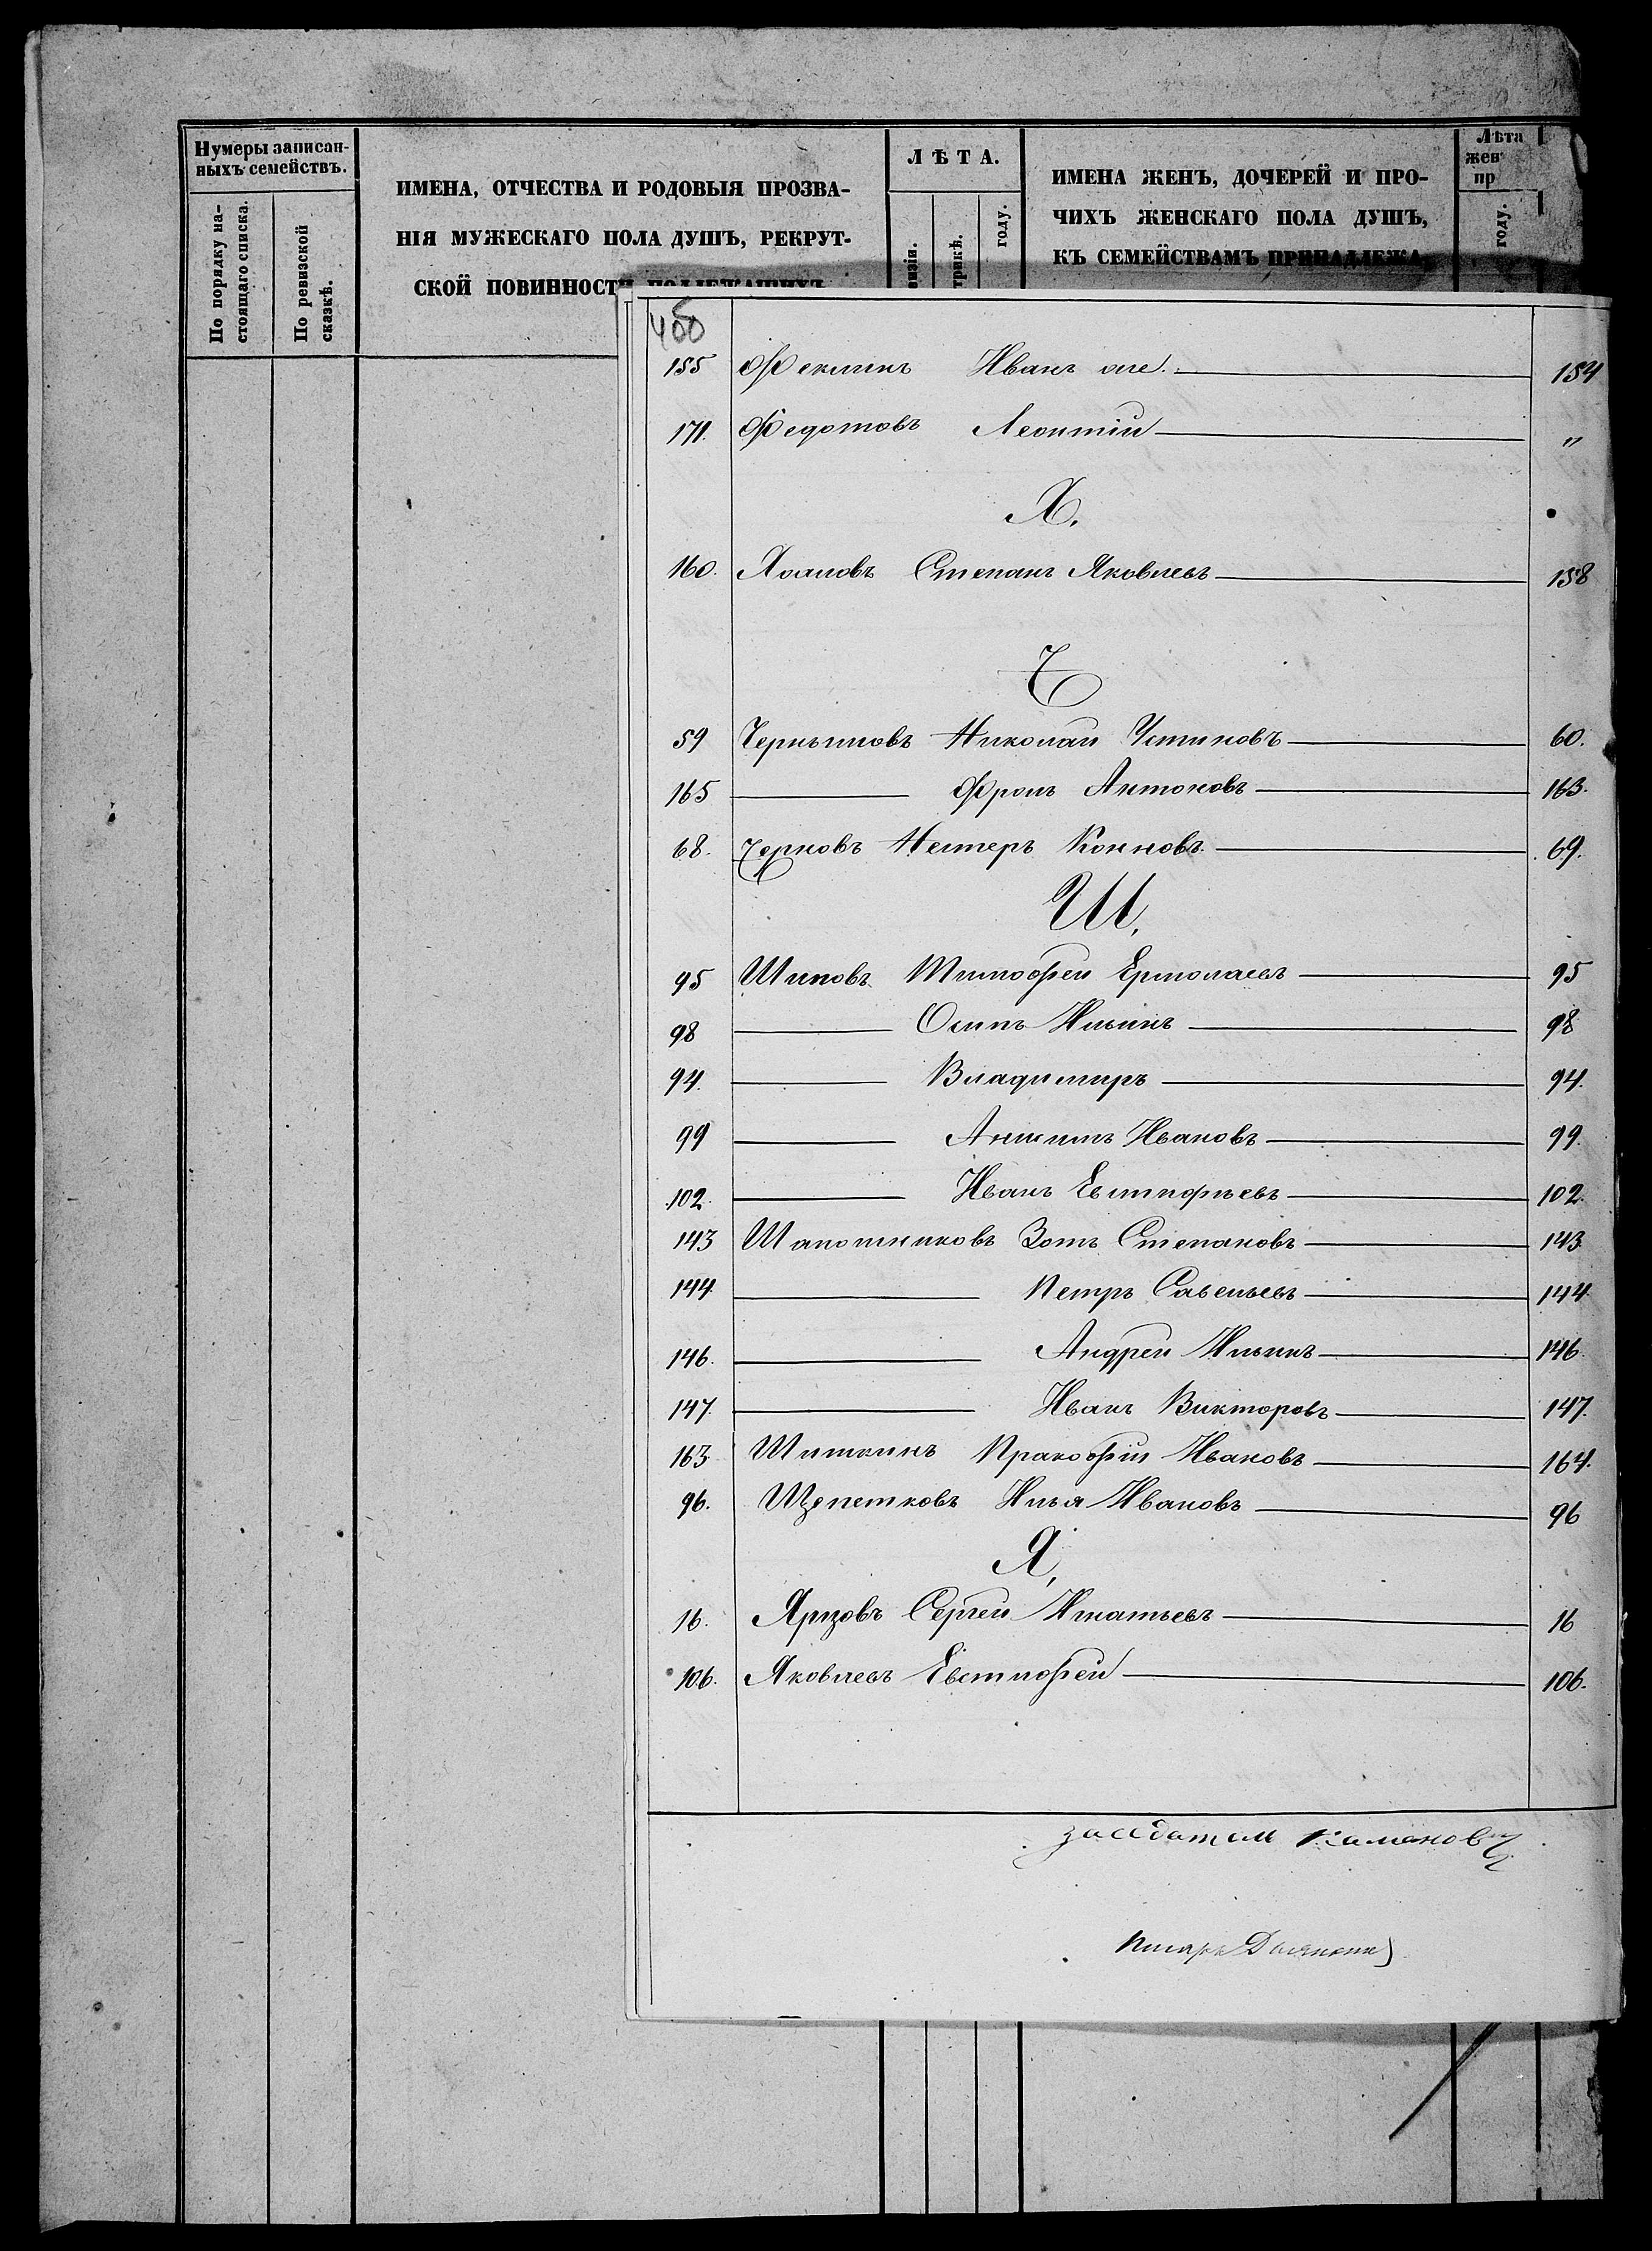 Нумеры записан-
ныхъ семействъ.
По порядку на-
стоящаго списка.
По ревизской
сказкѣ.
ИМЕНА, ОТЧЕСТВА И РОДОВЫЯ ПРОЗВА-
НІЯ МУЖЕСКАГО ПОЛА ДУШЪ, РЕКРУТ-
СКОЙ ПОВИННОСТИ ПОДЛЕЖАЩИХЪ
ЛѢТА.
визіи.
трикѣ.
году.
ИМЕНА ЖЕНЪ, ДОЧЕРЕЙ И ПРО-
ЧИХЪ ЖЕНСКАГО ПОЛА ДУШЪ,
КЪ СЕМЕЙСТВАМЪ ПРИНАДЛЕЖА
Лѣта
жен
пр
году.
155 Феклинъ Иванъ 154
171. Федотовъ Леонтій "
Х.
160. Степанъ Яковлевъ 158
Ч
59 Чернышовъ Николай Устиновъ 60.
165 Фролъ Антоновъ 163.
68. Черновъ Нестеръ Конновъ. 69.
Ш.
95 Шиповъ Тимофей Ермолаевъ 95
98 Осипъ Ильинъ 98
94. Владимиръ 94.
99 Иванов 99.
102. Иванъ Евстифѣевъ 102.
143 Шапошниковъ Зотъ Степановъ 143
144. Петръ Савельевъ 144.
146. Андрей Ильинъ 146.
147. Иванъ Викторовъ 147.
163. Шишкинъ Пракофій Ивановъ 164.
96. Щепетковъ Илья Ивановъ 96
Я.
16. Сергей Игнатьевъ 16
106. Яковлевъ Евстифей 106.
заседатель
Писарь